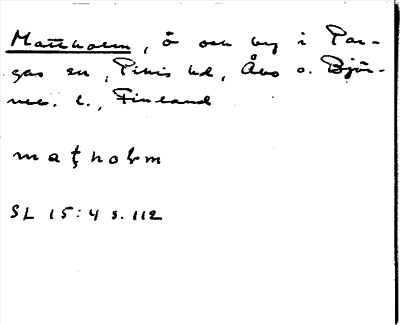 Mattholm, ö och by i Par-
gas sn, Pikis hd, Åbo o. Björ-
neb. l., Finland
maţholm
SL 15:4 s. 112